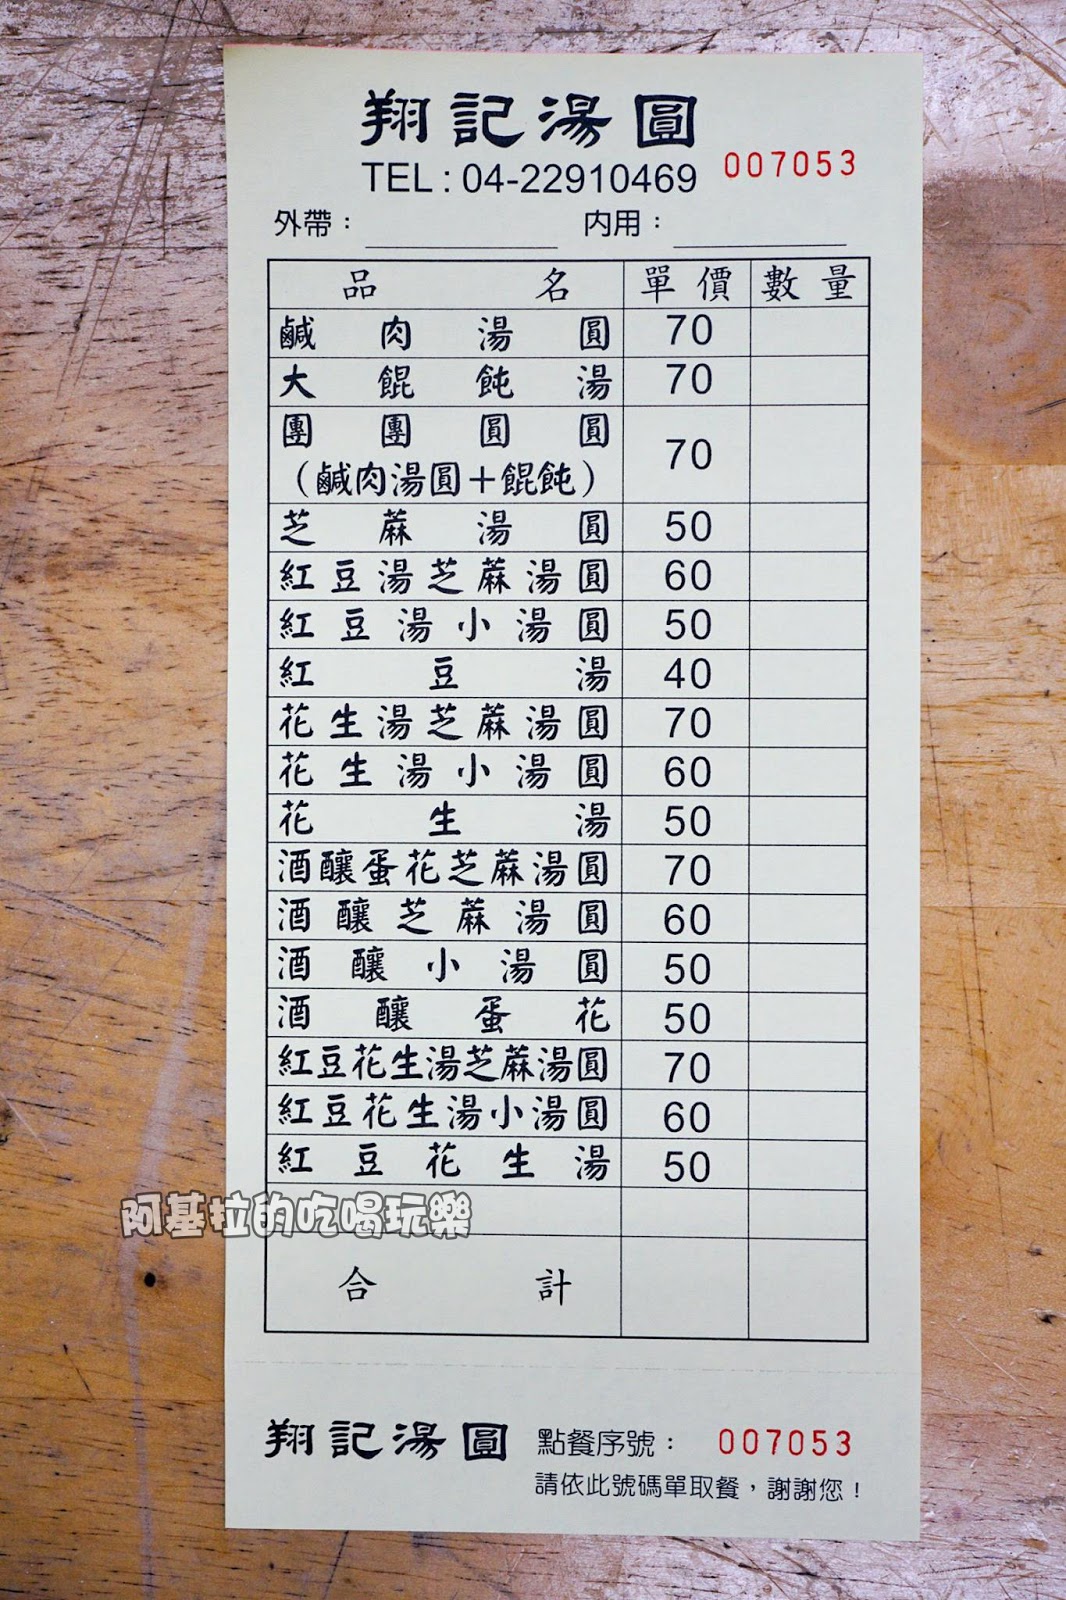 翔記湯圓
TEL：04-22910469 007053
外帶： 內用：
品名 單價 數量
鹹肉湯圓 70
大餛飩湯 70
團團圓圓
（鹹肉湯圓＋餛飩） 70
芝蔴湯圓 50
紅豆湯芝蔴湯圓 60
紅豆湯小湯圓 50
紅豆湯 40
花生湯芝蔴湯圓 70
花生湯小湯圓 60
花生湯 50
酒釀蛋花芝蔴湯圓 70
酒釀芝蔴湯圓 60
酒釀小湯圓 50
酒釀蛋花 50
紅豆花生湯芝蔴湯圓 70
紅豆花生湯小湯圓 60
紅豆花生湯 50
阿基拉的吃喝玩樂
合計
翔記湯圓 點餐序號： 007053
請依此號碼單取餐，謝謝您！